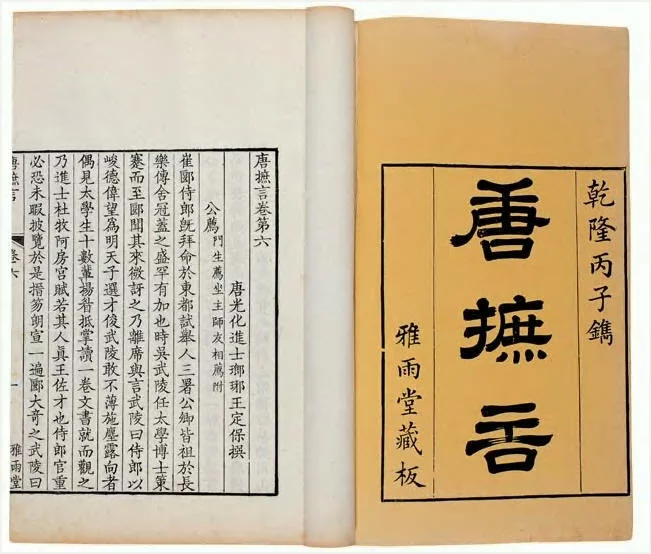 乾隆丙子鐫
唐摭言
雅雨堂藏板
唐摭言卷第六
唐光化進士瑯琊王定保撰
公薦 門生薦坐主師友相薦附
崔郾侍郎既拜命於東都試舉人三署公卿皆祖於長
樂傳舍冠蓋之盛罕有加也時吳武陵任太學博士策
蹇而至郾聞其來微訝之乃離席與言武陵曰侍郎以
峻德偉望為明天子選才俊武陵敢不薄施塵露向者
偶見太學生十數輩揚眉抵掌讀一卷文書就而觀之
乃進士杜牧阿房宮賦若其人真王佐才也侍郎官重
必恐未暇披覽於是搢笏朗宣一遍郾大奇之武陵曰
唐摭言 卷六 一 雅雨堂